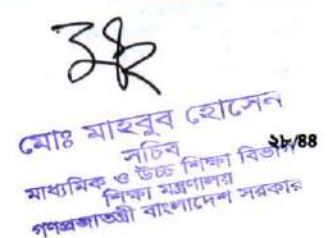 মোঃ মাহবুব হোসেন
সচিব
মাধ্যমিক ও উচ্চ শিক্ষা বিভাগ
শিক্ষা মন্ত্রণালয়
গণপ্রজাতন্ত্রী বাংলাদেশ সরকার
২৮/88